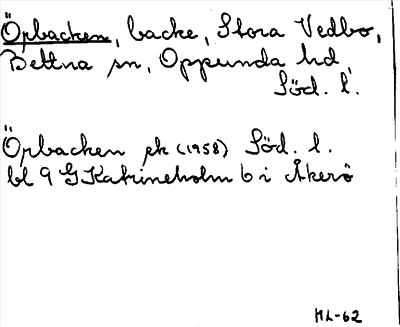 Örbacken, backe, Stora Vedbo,
Bettna sn, Oppunda hd,
Söd. l.
Örbacken ek (1958) Söd. l.
bl 9 G Katrineholm 6 i Åkerö
ML-62